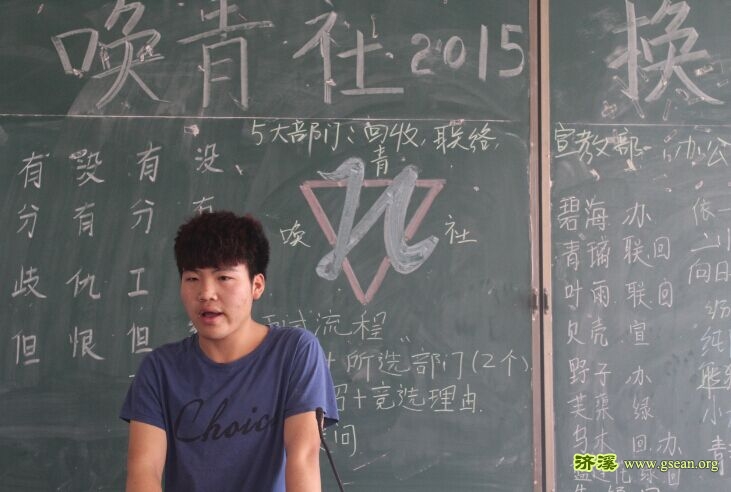 唤青社2015 换
5大部门：回收，联络，宣教部，办公
青
唤 社
有 没 有 没
分 有 分 有
歧 仇 工
但 恨 但
试流程
所选部门(2个)
+竞选理由
问
碧海 办
青璃 联回
叶雨 联回
贝壳 宣
野子 办
芙蕖 绿
乌木 回办
依一
向日
Choice
济溪 www.gsean.org